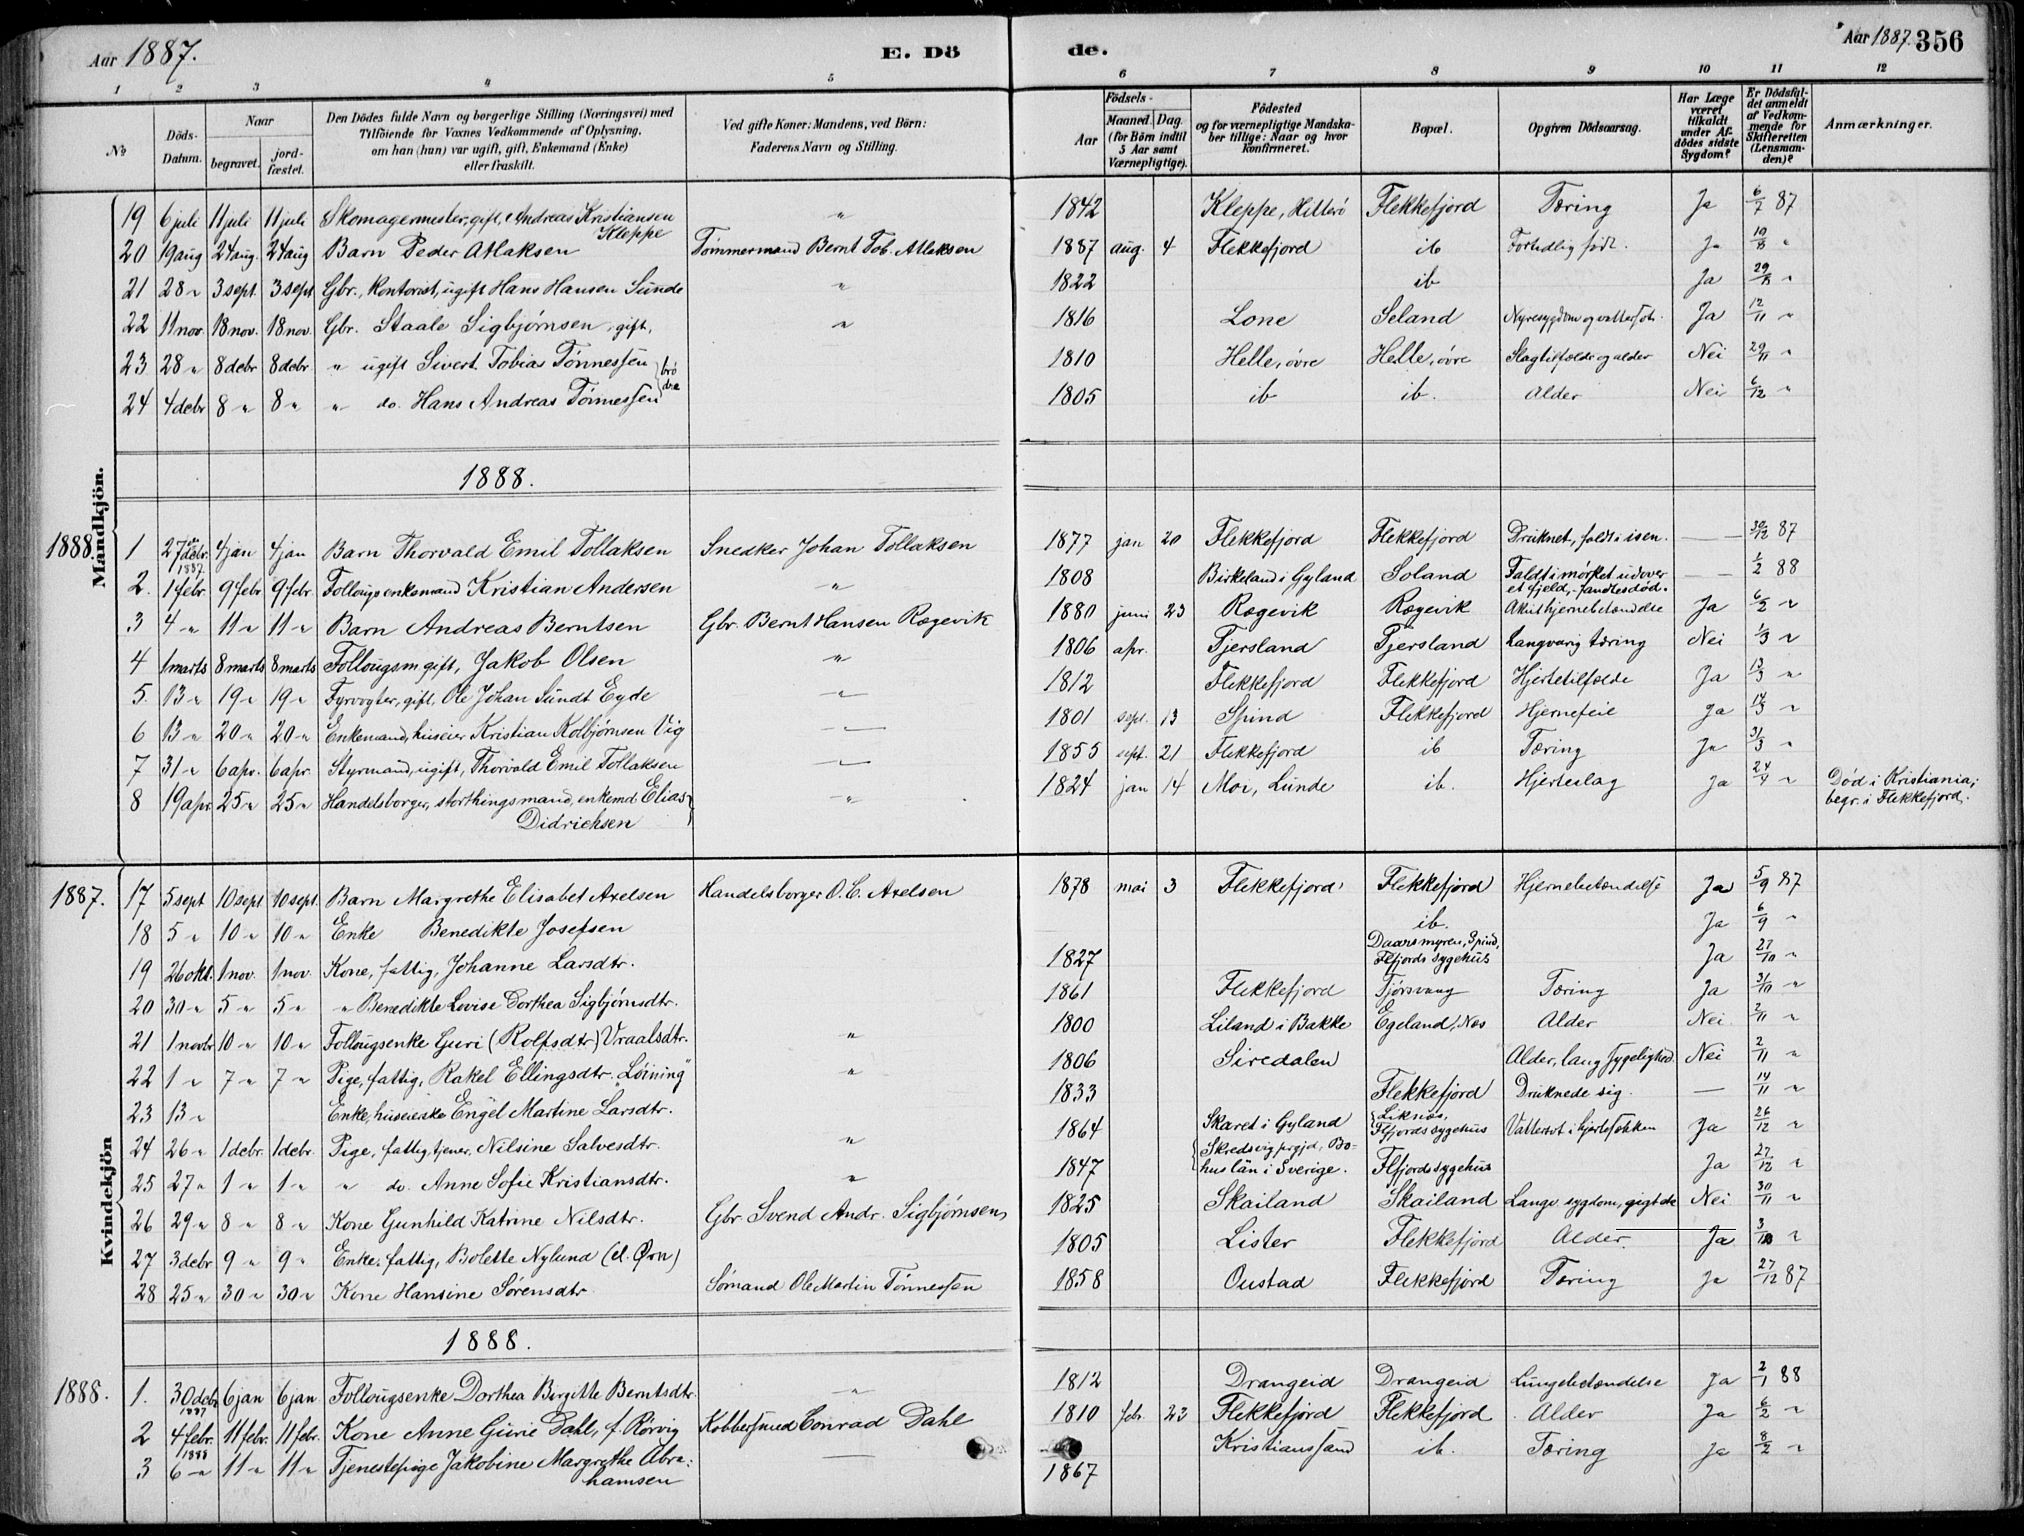 Aar 1887. E. Döde. Aar 1887. 356
1 2 3 4 5 6 7 8 9 10 11 12
No Döds-Datum. Naar begravet. jordfæstet. Den Dödes fulde Navn og borgerlige Stilling (Næringsvei) med Tilföiende for Voxnes Vedkommende af Oplysning, om han (hun) var ugift, gift, Enkemand (Enke) eller fraskilt. Ved gifte Koner: Mandens, ved Börn: Faderens Navn og Stilling. Födsels- Aar Maaned. Dag. (for Börn indtil 5 Aar samt Værnepligtige). Födested og for værnepligtige Mandskaber tillige: Naar og hvor Konfirmeret. Bopæl. Opgiven Dödsaarsag. Har Læge været tilkaldt under Afdödes sidste Sygdom? Er Dödsfaldet anmeldt af Vedkommende for Skifteretten (Lensmanden)? Anmærkninger.
Mandkjön.
19 6 juli 11 juli 11 juli Skomagermester, gift, Andreas Kristiansen Kleppe " 1842 Kleppe, Hitterö Flekkefjord Tæring Ja 6/7 87
20 19 aug 24 aug. 24 aug Barn Peder Atlaksen Tømmermand Bernt Tob. Atlaksen 1887 aug. 4 Flekkefjord ib Fortidlig født. Ja "
21 28 " 3 sept. 3 sept Gbr., kontorist, ugift Hans Hansen Sunde " 1822 ib Ja 29/8 "
22 11 nov. 18 nov. 18 nov. Gbr. Staale Sigbjørnsen, gift, " 1816 Lone Seland Nyresygdom og vattersot. Ja 12/11 "
23 28 " 8 debr 8 debr " ugift Sivert Tobias Tønnessen } brødre 1810 Helle, øvre Helle, øvre Slagtilfælde og alder Nei 29/11 "
24 4 debr 8 " 8 " " do. Hans Andreas Tønnessen 1805 ib ib. Alder Nei 6/12 "
1888.
1888. 1 27 debr. 1887 4 jan 4 jan Barn Thorvald Emil Tollaksen Snedker Johan Tollaksen 1877 jan 20 Flekkefjord Flekkefjord Druknet, faldt i isen. — 30/12 87
2. 1 febr. 9 febr 9 febr. Follougsenkemand Kristian Andersen " 1808 Birkeland i Gyland Soland Faldt i mørket udover et fjeld, - fandtes død. — 1/2 88
3 4 " 11 " 11 " Barn Andreas Berntsen Gbr. Bernt Hansen Rægevik 1880 juni 23 Rægevik Rægevik Akut hjernebetændelse Ja 6/2 "
4 1 marts 8 marts 8 marts Follougsm gift, Jakob Olsen " 1806 apr. Tjersland Tjersland Langvarig tæring Nei 1/3 "
5. 13 " 19 " 19 " Fyrvogter, gift, Ole Johan Sundt Eyde " 1812 Flekkefjord Flekkefjord Hjertetilfælde Ja 13/3 "
6 13 " 20 " 20 " Enkemand, huseier Kristian Kolbjørnsen Vig " 1801 sept. 13 Spind Flekkefjord Hjernefeil Ja 14/3 "
7 31 " 6 apr. 6 apr. Styrmand, ugift, Thorvald Emil Tollaksen " 1855 sept. 21 Flekkefjord ib Tæring Ja 31/3 "
8 19 apr 25 " 25 " Handelsborger, storthingsmand, enkemd Elias Didrichsen " 1824 jan 14 Moi, Lunde ib. Hjerteslag Ja 24/4 " Død i Kristiania; begr. i Flekkefjord.
Kvindekjön
1887. 17 5 sept 10 sept 10 sept. Barn Margrethe Elisabet Axelsen Handelsborger O. C. Axelsen 1878 mai 3 Flekkefjord Flekkefjord Hjernebetændelse Ja 5/9 87
18 5 " 10 " 10 " Enke Benedikte Josefsen ib. Ja 6/9 "
19 26 okt. 1 nov. 1 nov. Kone, fattig, Johanne Larsdtr. 1827 Daarsmyren, Spind, Flfjords sygehus Ja 27/10 "
20 30 " 5 " 5 " " Benedikte Lovise Dorthea Sigbjørnsdtr. 1861 Flekkefjord Tjørsvaag Tæring Ja 31/10 "
21 1 novbr 10 " 10 " Follougsenke Guri (Rolfsdtr) Vraalsdtr. " 1800 Liland i Bakke Egeland, Næs Alder Nei 2/11 "
22 1 " 7 " 7 " Pige, fattig, Rakel Ellingsdtr. "Løining" " 1806 Siredalen Alder, lang sygelighed Nei 2/11 "
23 13 " Enke, huseierske Engel Martine Larsdtr. 1833 Flekkefjord Druknede sig. — 14/11 "
24 26 " 1 debr. 1 debr. Pige, fattig, tjener, Nilsine Salvesdtr. " 1864 Skaret i Gyland Liknæs, Flfjords sygehus Vattersot i hjertesækken Ja 26/12 "
25 27 " 1 " 1 " " do. Anne Sofie Kristiansdtr. " 1847 Skredsvig prgjd, Bohuslän i Sverige. Flfjords sygehus Ja 27/12 "
26 29 " 8 " 8 " Kone Gunhild Katrine Nilsdtr. Gbr. Svend Andr. Sigbjørnsen 1825 Skailand Skailand Lang sygdom, Nei 30/11 "
27 3 debr 9 " 9 " Enke, fattig, Bolette Nylund (d. Ørn) 1805 Lister Flekkefjord Alder. Ja "
28 25 " 30 " 30 " Kone Hansine Sørensdtr. Sømand Ole Martin Tønnessen 1858 Oustad Flekkefjord Tæring Ja 27/12 87
1888.
1888. 1. 30 debr. 1887 6 jan 6 jan Follougsenke Dorthea Birgitte Berntsdtr. " 1812 Drangeid Drangeid Lungebetændelse Ja 2/1 88
2 4 febr. 1888 11 febr. 11 febr. Kone Anne Gurie Dahl, f. Rørvig Kobbersmed Conrad Dahl 1810 febr. 23 Flekkefjord Flekkefjord Alder Ja 6/2 "
3 6 " 11 " 11 " Tjenestepige Jakobine Margrethe Abrahamsen — 1867 Kristianssand ib. Tæring Ja 8/2 "